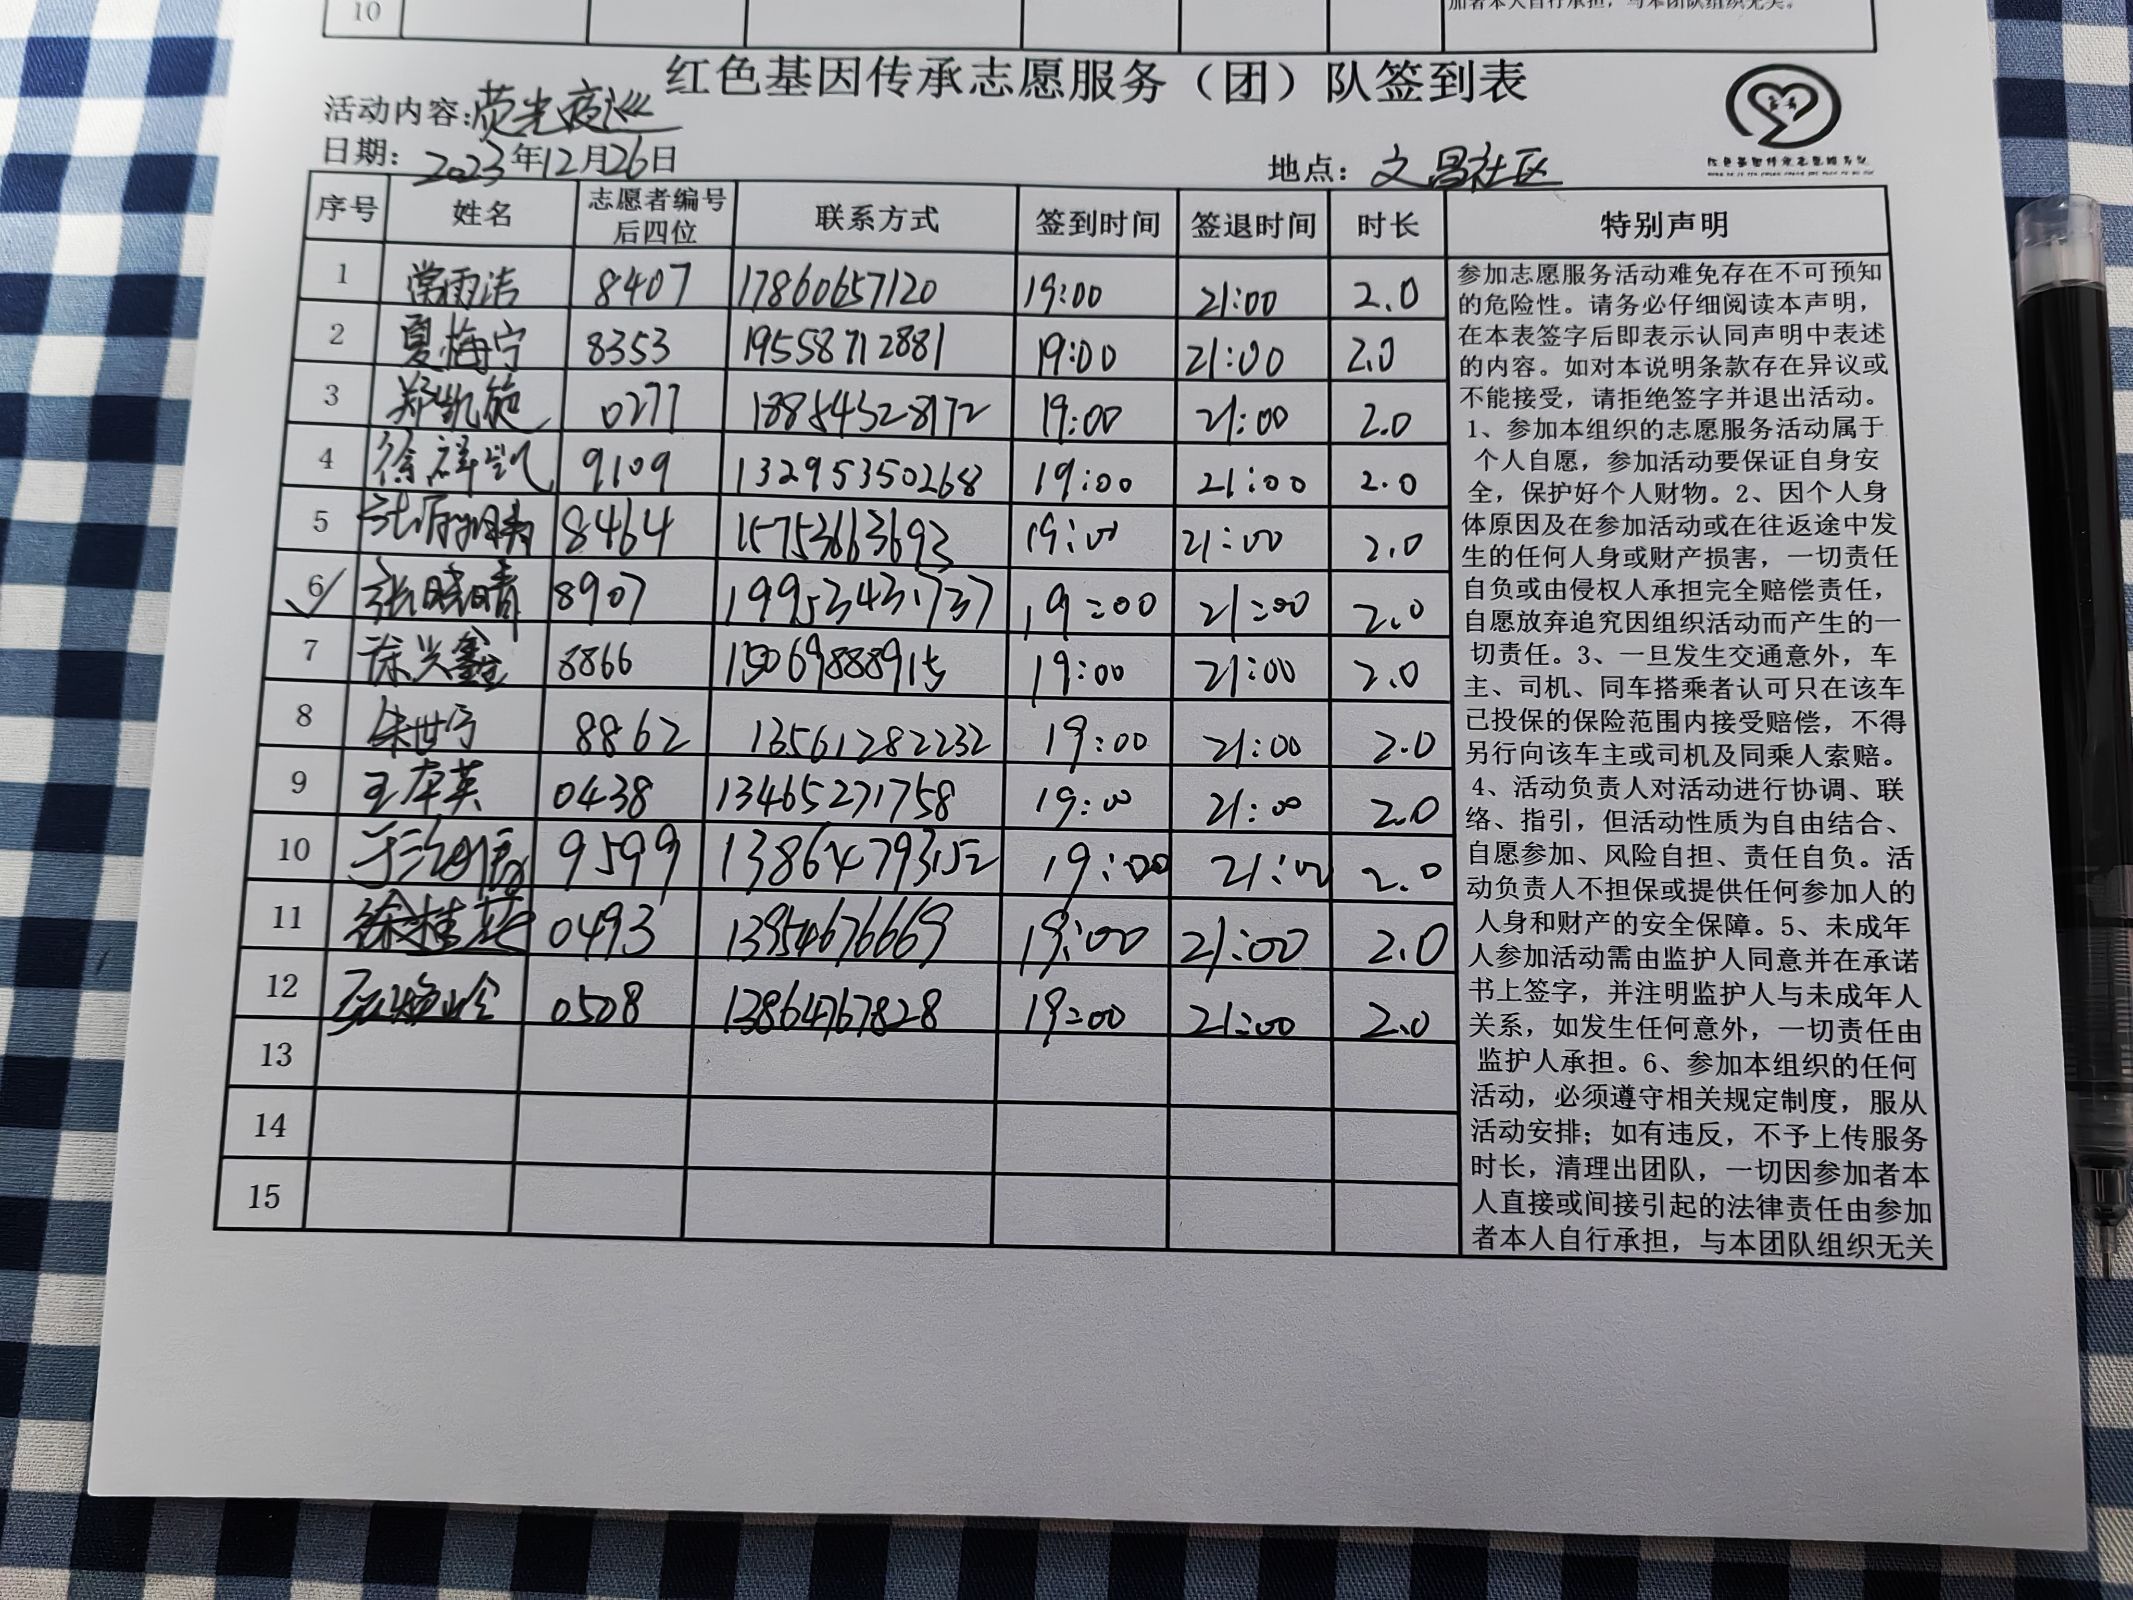 10
加者本人自行承担，与本团队组织无关。
红色基因传承志愿服务（团）队签到表
活动内容：荧光夜巡
日期：2023年12月26日
地点：文昌社区
序号 姓名 志愿者编号后四位 联系方式 签到时间 签退时间 时长 特别声明
1 常雨洁 8407 17860657120 19:00 21:00 2.0
2 夏梅宁 8353 19558712881 19:00 21:00 2.0
3 郑凯 0277 18854328172 19:00 21:00 2.0
4 徐祥凯 9109 13295350268 19:00 21:00 2.0
5 8464 15753663693 19:00 21:00 2.0
6 张晓晴 8907 19953431737 19:00 21:00 2.0
7 徐兴鑫 8866 15069888915 19:00 21:00 2.0
8 朱世宁 8862 13561282232 19:00 21:00 2.0
9 王本英 0438 13465271758 19:00 21:00 2.0
10 9599 13864793152 19:00 21:00 2.0
11 徐桂英 0493 13954676669 19:00 21:00 2.0
12 0508 13864767828 19:00 21:00 2.0
13
14
15
参加志愿服务活动难免存在不可预知
的危险性。请务必仔细阅读本声明，
在本表签字后即表示认同声明中表述
的内容。如对本说明条款存在异议或
不能接受，请拒绝签字并退出活动。
1、参加本组织的志愿服务活动属于
个人自愿，参加活动要保证自身安
全，保护好个人财物。2、因个人身
体原因及在参加活动或在往返途中发
生的任何人身或财产损害，一切责任
自负或由侵权人承担完全赔偿责任，
自愿放弃追究因组织活动而产生的一
切责任。3、一旦发生交通意外，车
主、司机、同车搭乘者认可只在该车
已投保的保险范围内接受赔偿，不得
另行向该车主或司机及同乘人索赔。
4、活动负责人对活动进行协调、联
络、指引，但活动性质为自由结合、
自愿参加、风险自担、责任自负。活
动负责人不担保或提供任何参加人的
人身和财产的安全保障。5、未成年
人参加活动需由监护人同意并在承诺
书上签字，并注明监护人与未成年人
关系，如发生任何意外，一切责任由
监护人承担。6、参加本组织的任何
活动，必须遵守相关规定制度，服从
活动安排；如有违反，不予上传服务
时长，清理出团队，一切因参加者本
人直接或间接引起的法律责任由参加
者本人自行承担，与本团队组织无关